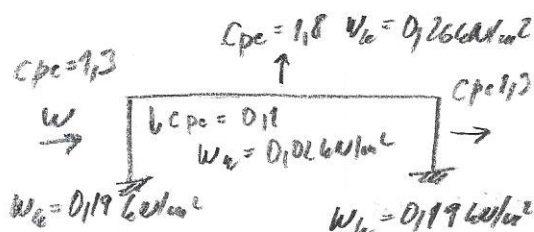 Cpe = 1,8 Wk = 0,26 kN/m²
Cpe = 1,3
Cpe 1,3
W
↓ Cpe = 0,1
Wk = 0,02 kN/m²
Wk = 0,19 kN/m²
Wk = 0,19 kN/m²